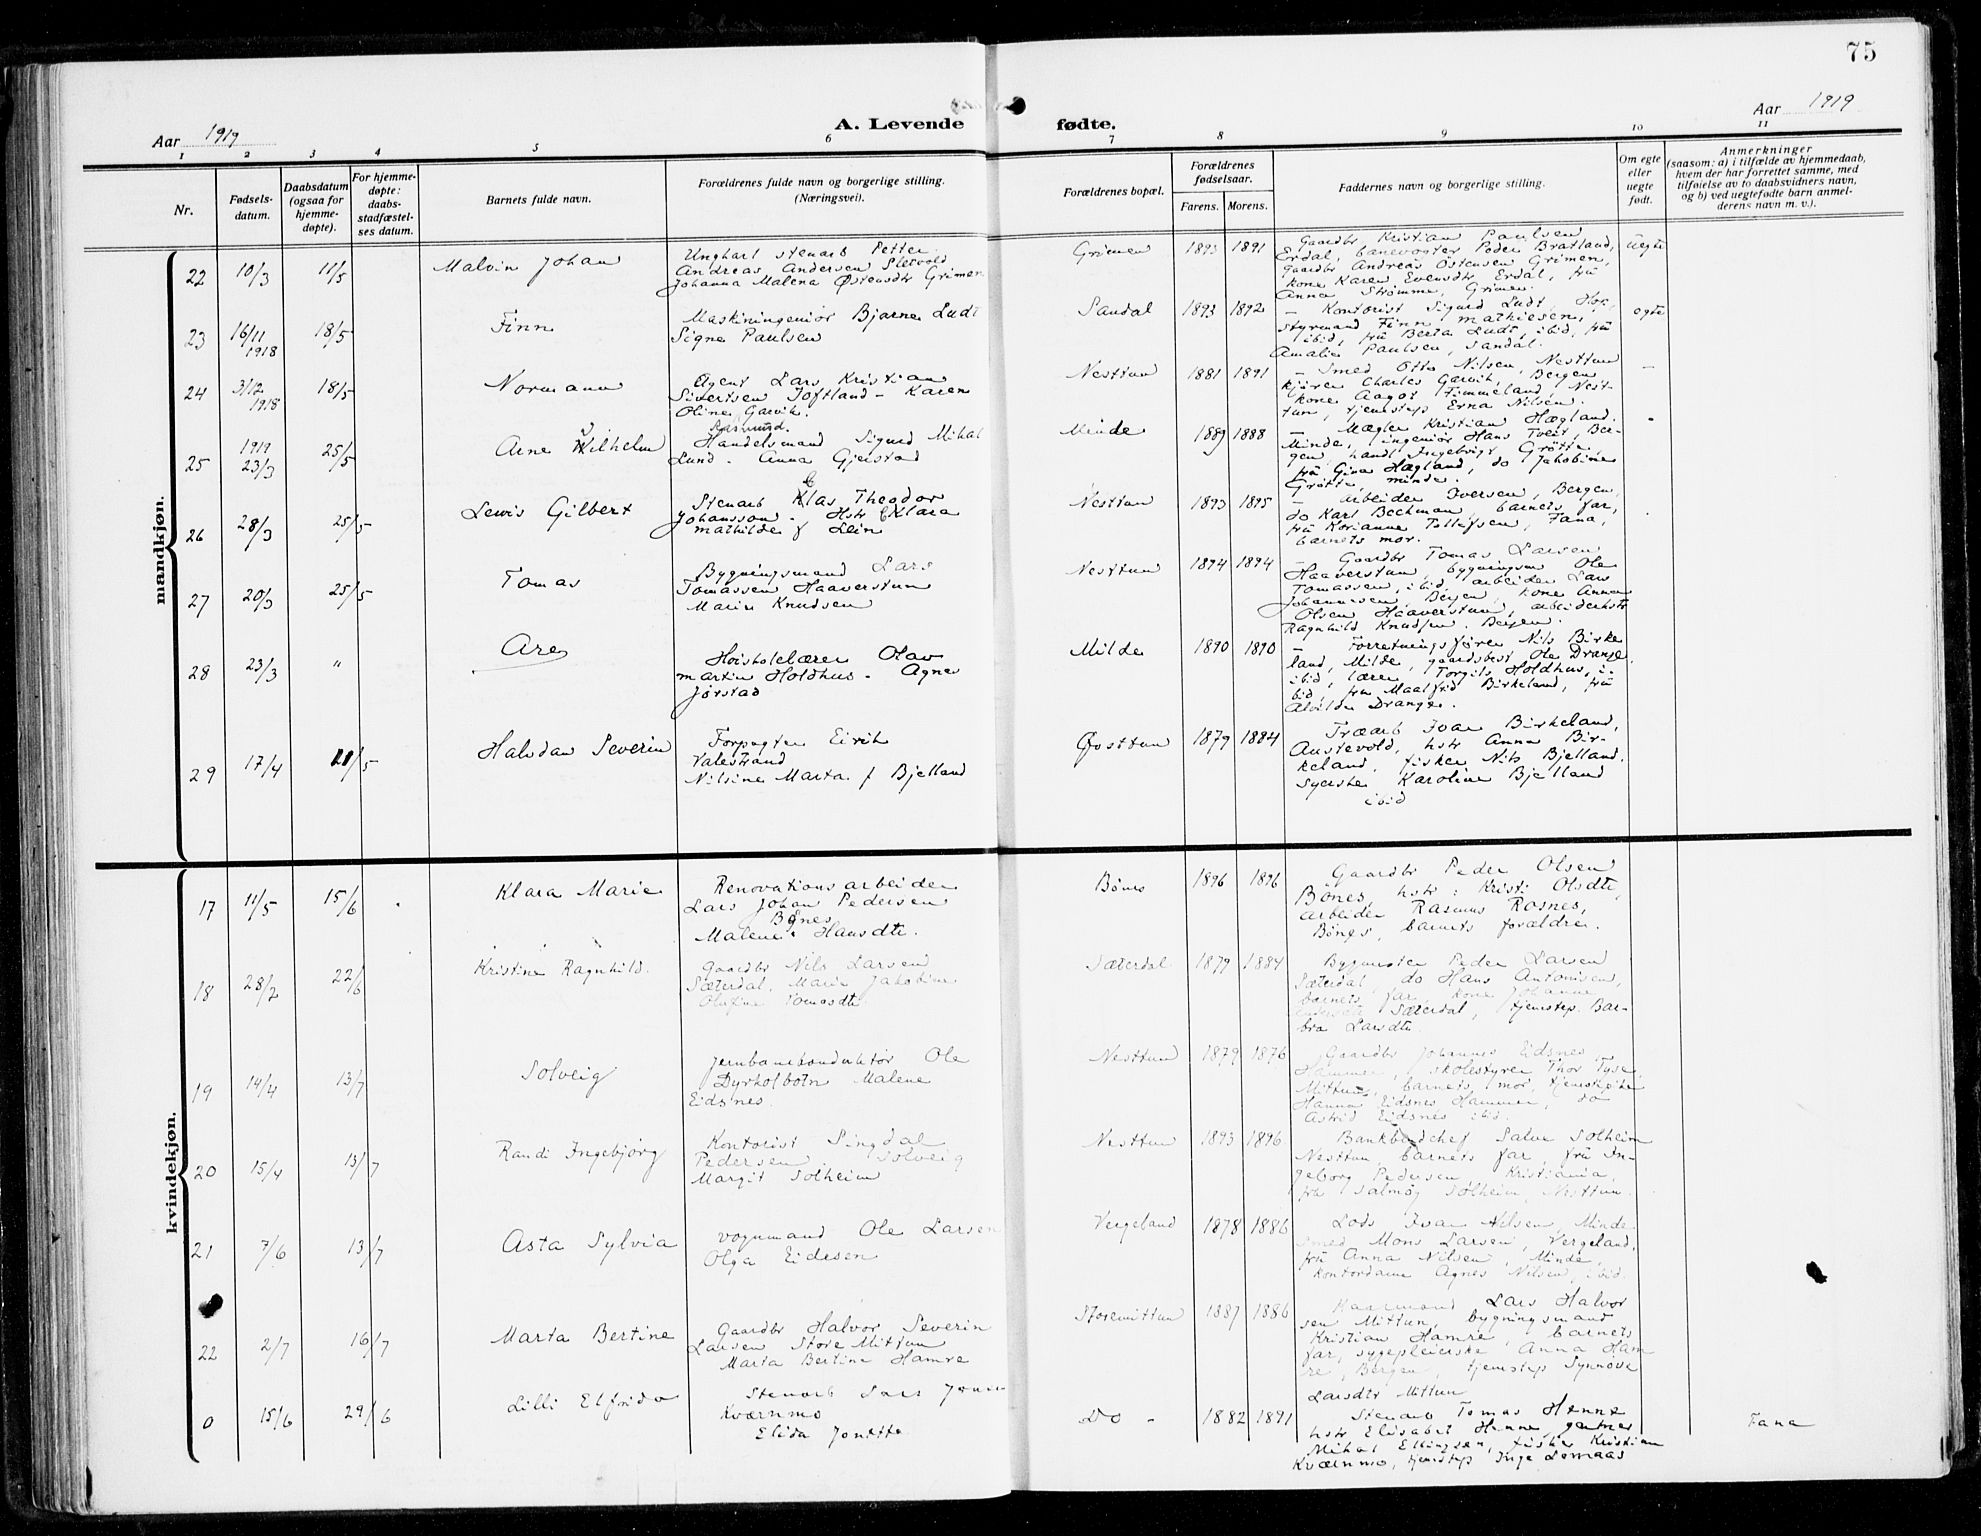 75
Aar 1919
A. Levende
fødte.
Aar 1919
1 2 3 4 5 6 7 8 9 10 11
Nr.
Fødsels-
datum.
Daabsdatum
(ogsaa for
hjemme-
døpte).
For hjemme-
døpte:
daabs-
stadfæstel-
ses datum.
Barnets fulde navn.
Forældrenes fulde navn og borgerlige stilling.
(Næringsvei).
Forældrenes bopæl.
Forældrenes
fødselsaar.
Farens. Morens.
Faddernes navn og borgerlige stilling.
Om egte
eller
uegte
født.
Anmerkninger
(saasom: a) i tilfælde av hjemmedaab,
hvem der har forrettet samme, med
tilføielse av to daabsvidners navn,
og b) ved uegtefødte barn anmel-
derens navn m. v.).
mandkjøn.
22 10/3 11/5 Malvin Johan
Ungkarl stenarb Petter
Andreas Andersen Sletvold
Johanna Malena Østensdtr Grimen
Grimen 1893 1891
Gaardbr Kristian Paulsen
Erdal, banevogter Peder Bratland,
gaardbr Andreas Østensen Grimen,
kone Karen Evensdtr Erdal, frü
Anna Strømme, Grimen.
uegte
23 16/11 1918 18/5 Finn
Maskiningeniør Bjarne Ludt
Signe Paulsen
Sandal 1893 1892
– Kontorist Sigurd Ludt, Hop,
styrmand Finn Mathiesen,
ibid, frü Berta Ludt, ibid, frü
Amalie Paulsen, Sandal.
egte
24 3/12 1918 18/5 Normann
Agent Lars Kristian
Sivertsen Toftland – Karen
Oline Garvik.
Nesttun 1881 1891
– Smed Otto Nilsen, Nesttun
kjøren Charles Garvik, Bergen
kone Aagot Timmeland, Nest-
tun, tjenestep Erna Nilsen.
–
25 1919 23/3 25/5 Arne Wilhelm
Rasmus.
Handelsmand Sigurd Mihal
Lund – Anna Gjerstad
Minde 1889 1888
– Mægler Kristian Hægland.
Minde, ingeniør Hans Tveit, Ber-
gen, handl Ingebrigt Grøtte,
frü Gina Hægland, do Jakobine
Grøtte, Minde.
26 28/3 25/5 Lewis Gilbert
Stenarb Klas Theodor
Johansson – Hstr Klara
Mathilde f Lein
Nesttun 1893 1895
– arbeider Iversen, Bergen,
do Karl Beckman, barnets far,
frü Korianna Tollefsen, Fana,
barnets mor.
27 20/3 25/5 Tomas
Bygningsmand Lars
Tomassen Haaverstun
Marie Knudsen
Nesttun 1894 1894
– Gaardbr Tomas Larsen
Haaverstun bygningsm Ole
Tomassen, ibid, arbeider Lars
Johannesen Bergen, kone Anna
Olsen Haaverstun, arbeiderhstr
Ragnhild Knudsen. Bergen.
28 23/3 " Are
Høiskolelærer Olav
Martin Holdhus – Agnes
Jørstad
Milde 1890 1890
– Forretningsfører Nils Birke
land, Milde, gaardsbest Ole Drange
ibid, lærer Torgils Holdhus, i-
bid, frü Maalfrid Birkeland, frü
Alvilde Drange.
29 17/4 11/5 Halvdan Severin
Forpagter Eirik
Valestrand
Nilsine Marta f Bjelland
Øvsttun 1879 1884
Træarb Ivar Birkeland,
Austevold, hstr Anna Bir-
keland, fisker Nils Bjelland.
Syerske Karoline Bjelland
ibid
kvindekjøn.
17 11/5 15/6 Klara Marie
Renovationsarbeider
Lars Johan Pedersen
Bønes
Malene Hansdtr.
Bönes 1896 1896
Gaardbr Peder Olsen
Bönes, hstr: Kristi Olsdtr,
arbeider Rasmus Rosnes,
Bönes, barnets forældre.
18 28/2 22/6 Kristine Ragnhild.
Gaardbr Nils Larsen
Sæterdal. Marie Jakobine
Olufine Tomasdtr
Sæterdal 1879 1884
Bygmester Peder Larsen
Sæterdal, do Hans Antonisen,
barnets far, kone Johanne
Sæterdal, tjenstep. Bar-
bra Larsdtr.
19 14/4 13/7 Solveig
Jernbanekonduktør Ole
Dyrkolbotn Malene
Eidsnes.
Nesttun 1879 1876
Gaardbr Johannes Eidsnes
Hammer, skolestyrer Thor Tyse,
Mittun, barnets mor, tjenstpike
Hanna Eidsnes Hammer, do
Astrid Eidsnes ibid.
20 15/4 13/7 Randi Ingebjørg
Kontorist Singdal
Pedersen Solveig
Margit Solheim
Nesttun 1893 1896
Bankbudchef Salve Solheim
Nesttun barnets far, frü In-
geborg Pedersen, Kristiania,
frü Salmøy Solheim, Nesttun.
21 7/6 13/7 Asta Sylvia
vognmand Ole Larsen
Olga Eidesen
Vergeland 1878 1886
Lods Ivar Nilsen, Minde
smed Mons Larsen, Vergeland,
frü Anna Nilsen, Minde,
kontordame Agnes Nilsen, ibid.
22 2/7 16/7 Marta Bertine
Gaardbr Halvor Severin
Larsen Store Mittun
Marta Bertine Hamre
Storemittun 1887 1886
Kaarmand Lars Halvor
sen Mittun, bygningsmand
Kristian Hamre barnets
far, sygepleierske Anna Ham
re, Bergen, tjenstep Synnøve
Larsdtr Mittun
0 15/6 29/6 Lilli Elfrida
Stenarb Lars Jonas
Kværnmo
Elida Jonette
Do – 1882 1891
Stenarb Tomas Henne
hstr Elisabet Henne, gartner
Mihal Ellingsen, fisker Kristian
Kværnmo, tjenstep Inga Lemaas
Fana